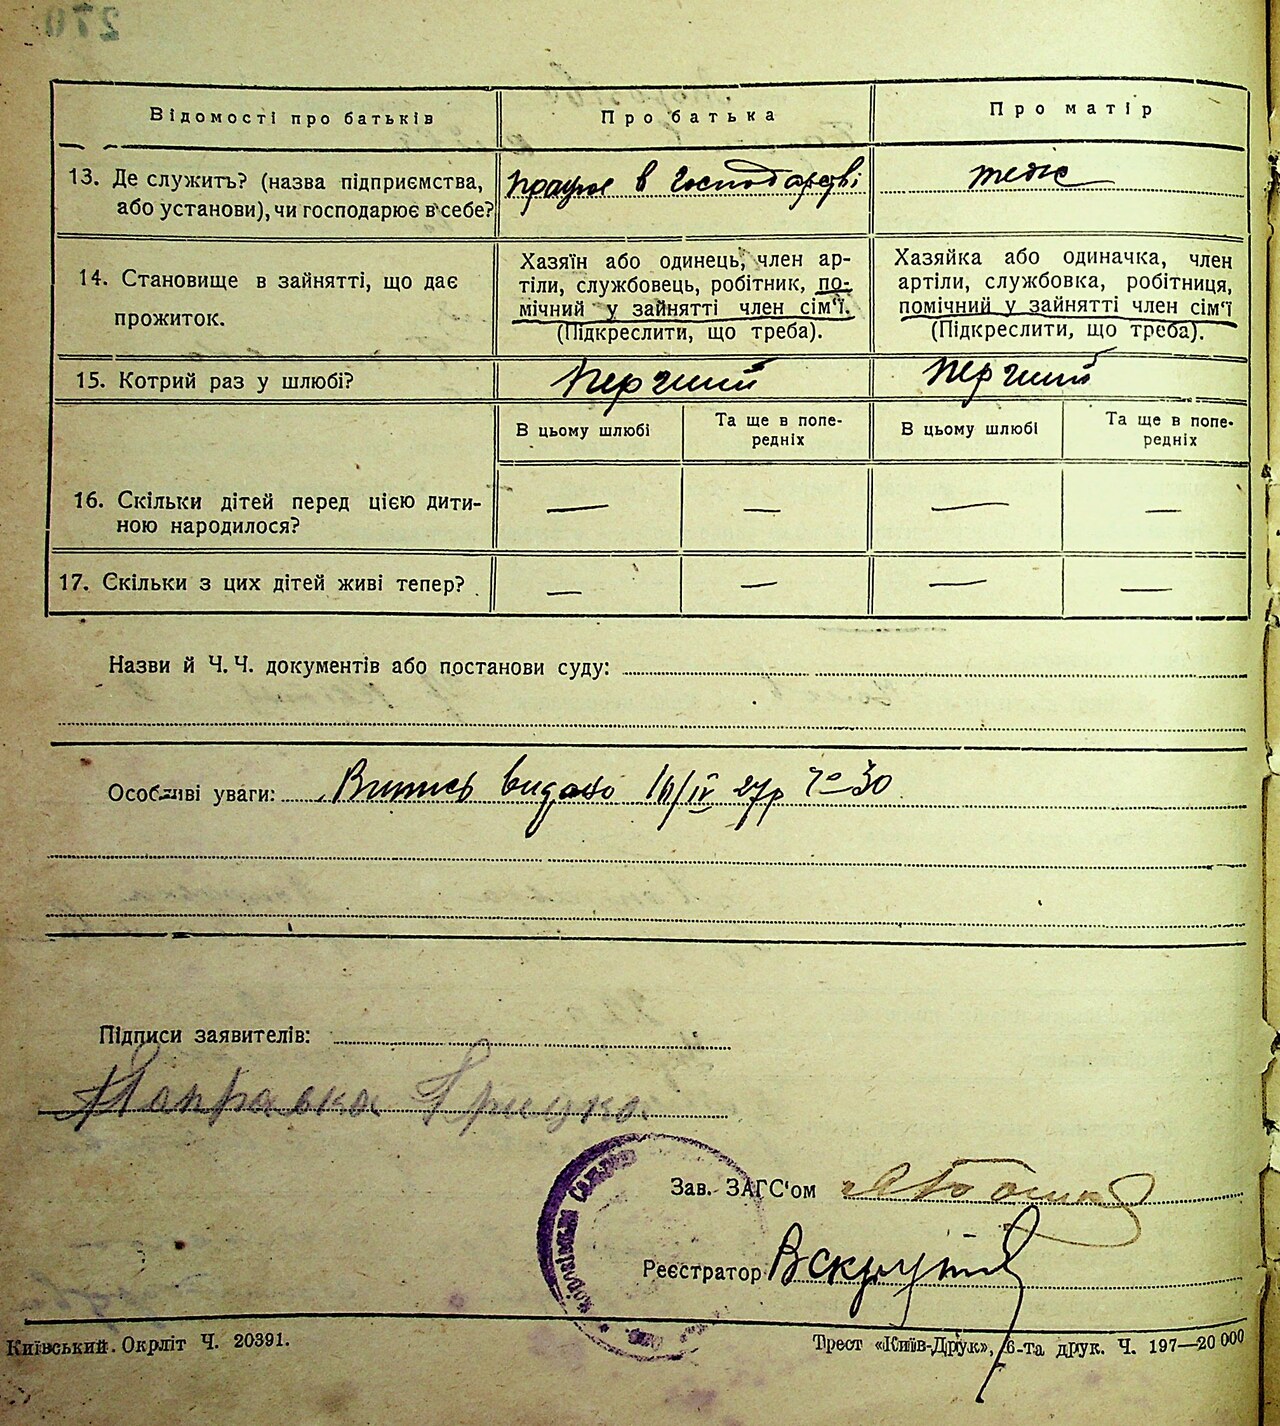 270
Відомості про батьків
Про батька
Про матір
13. Де служить? (назва підприємства,
або установи), чи господарює в себе?
працює в господарстві
теж
14. Становище в зайнятті, що дає
прожиток.
Хазяїн або одинець, член ар-
тіли, службовець, робітник, по-
мічний у зайнятті член сім'ї.
(Підкреслити, що треба).
Хазяйка або одиначка, член
артіли, службовка, робітниця,
помічний у зайнятті член сім'ї
(Підкреслити, що треба).
15. Котрий раз у шлюбі?
перший
перший
В цьому шлюбі
Та ще в попе-
редніх
В цьому шлюбі
Та ще в попе-
редніх
16. Скільки дітей перед цією дити-
ною народилося?
— — — —
17. Скільки з цих дітей живі тепер?
— — — —
Назви й Ч. Ч. документів або постанови суду:
Особливі уваги: Випись видано IV 27р 30
Підписи заявителів:
Заправка Грицко
Зав. ЗАГС'ом
Реєстратор
Київський. Окрліт Ч. 20391.
Трест «Київ-Друк», 6-та друк. Ч. 197—20 000